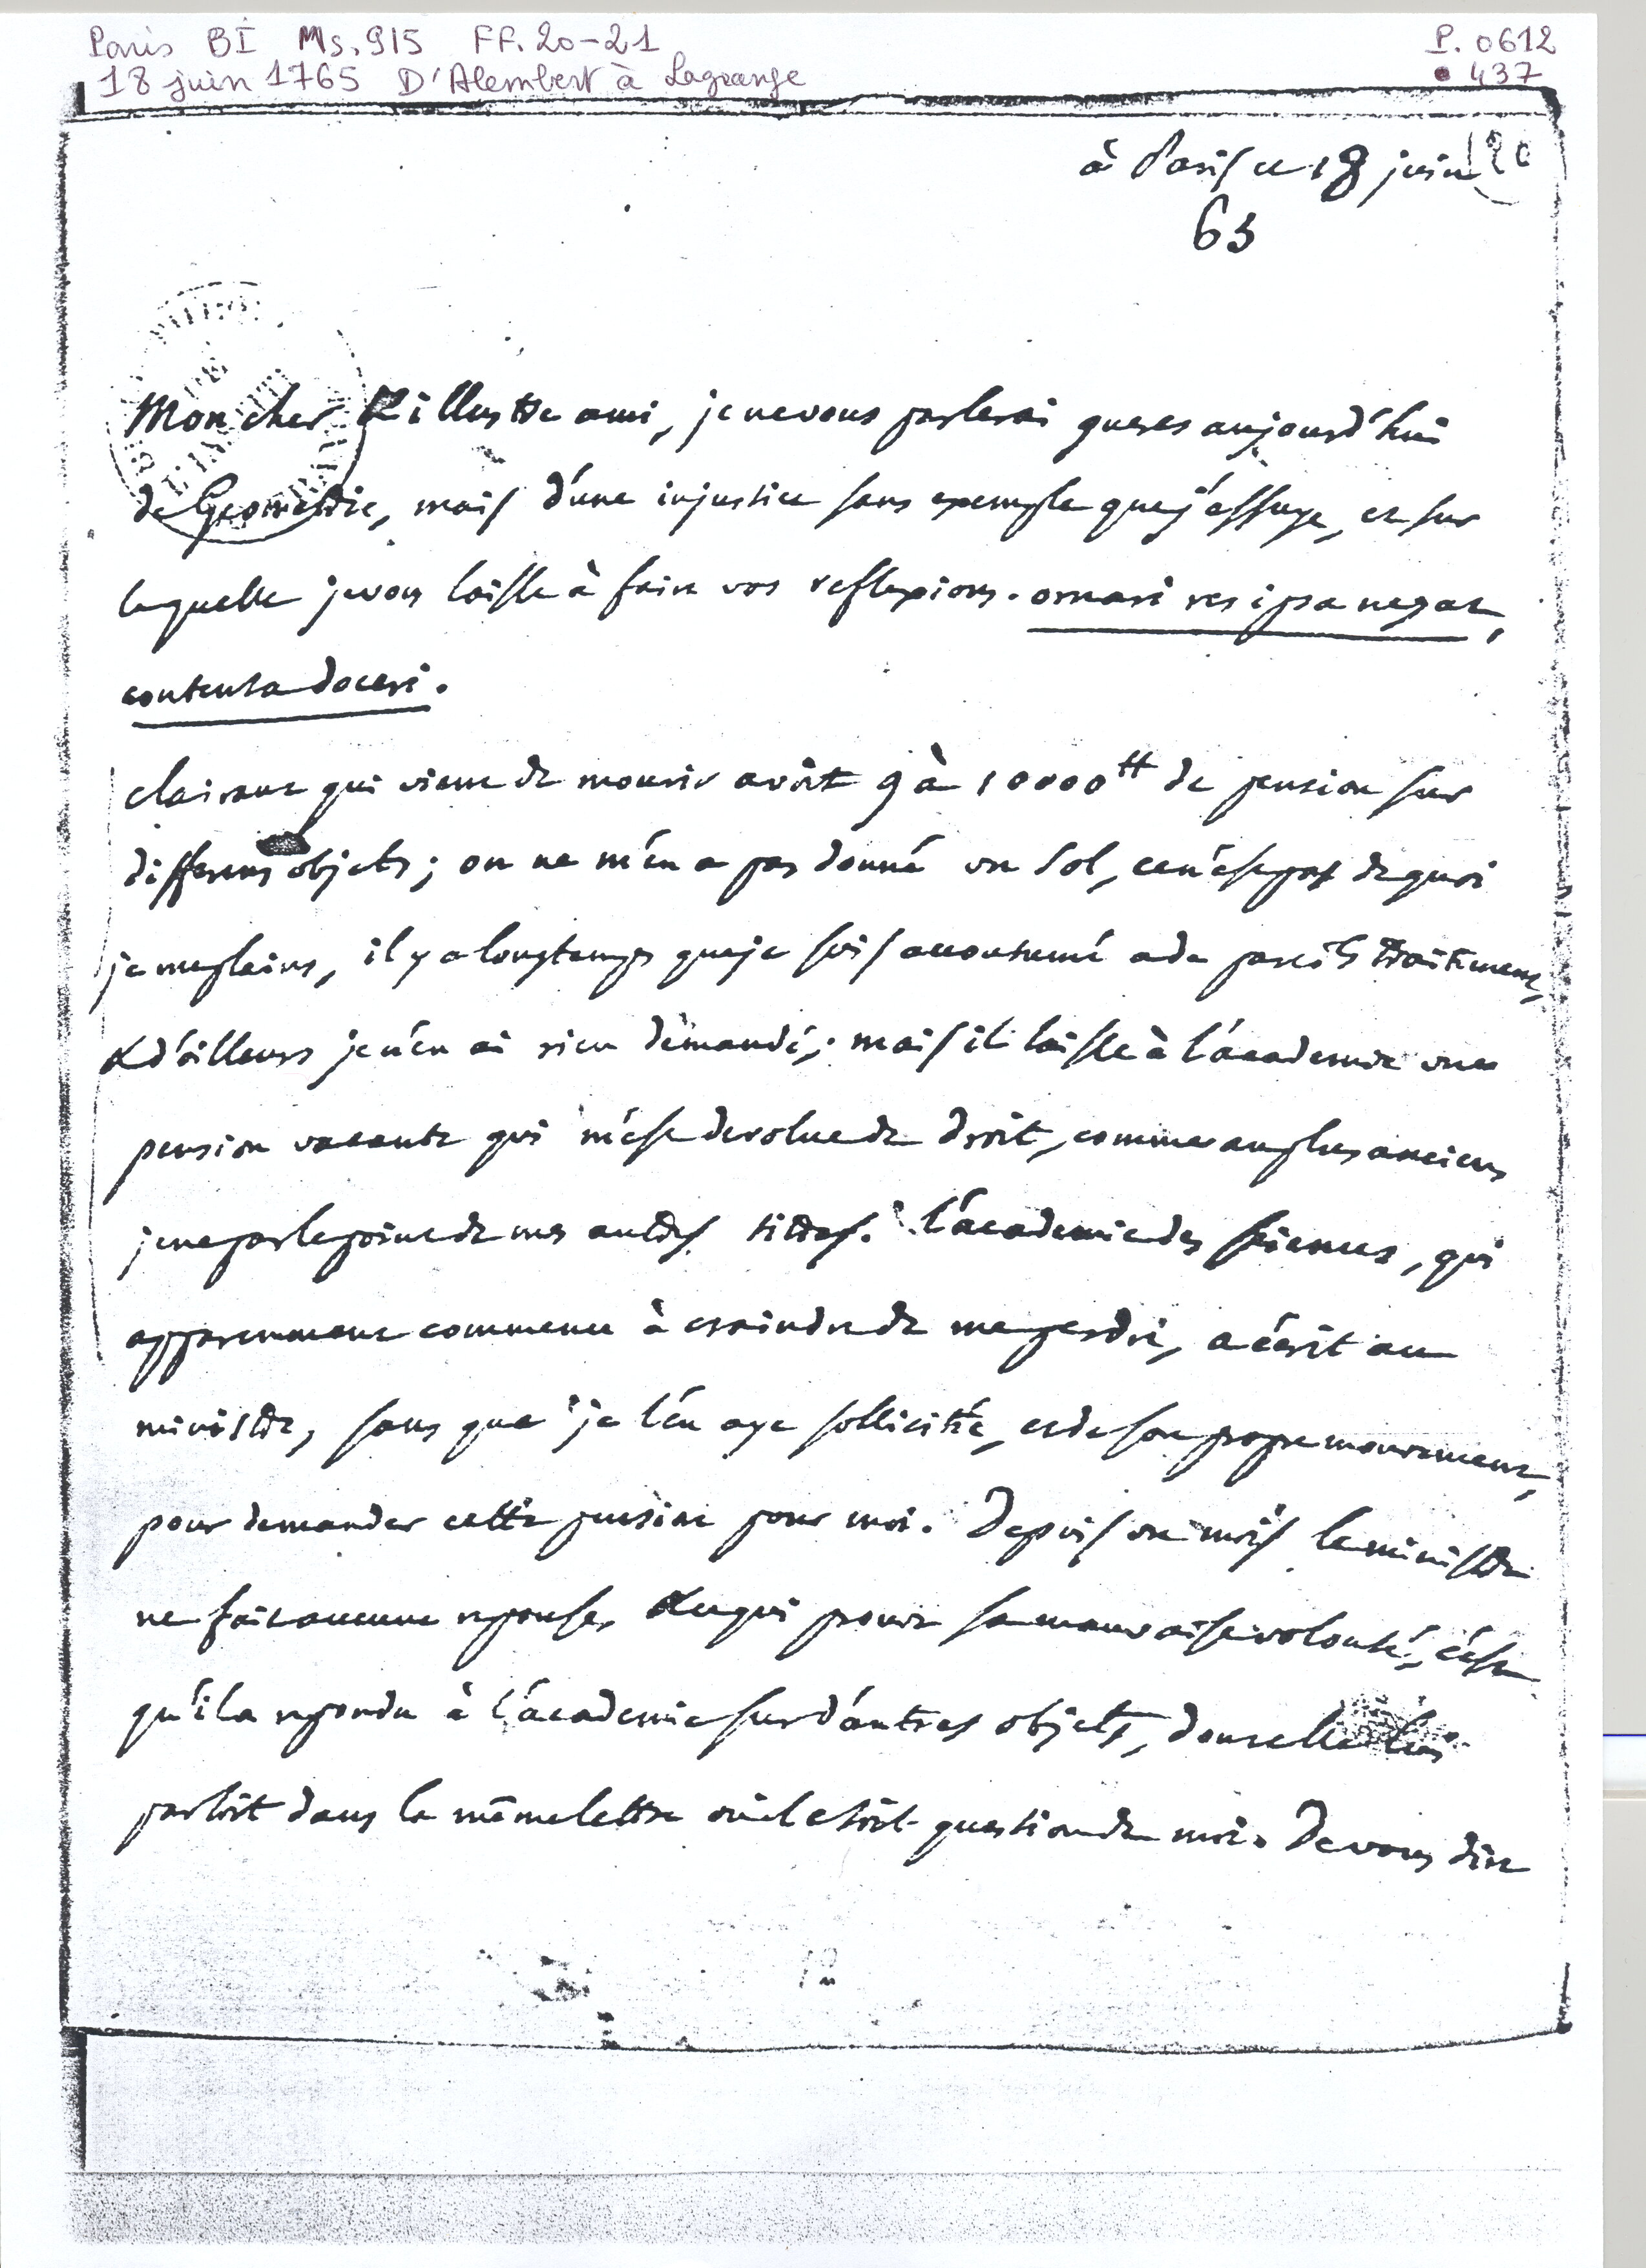 Paris BI Ms. 915 FF. 20-21
P. 0612
18 juin 1765 D'Alembert à Lagrange
• 437
à Paris ce 18 juin 20
65
Mon cher & illustre ami, je ne vous parlerai gueres aujourd'hui
de Geometrie, mais d'une injustice sans exemple que j'essuye, et sur
laquelle je vous laisse à faire vos reflexions. ornari res ipsa negat,
contenta doceri.
clairaut qui vient de mourir avoit 9 à 10000tt de pension sur
differens objets; on ne m'en a pas donné un sol, ce n'est pas de quoi
je me plains, il y a longtemps que je suis accoutumé a de pareils traitemens,
& d'ailleurs je n'en ai rien demandé; mais il laisse à l'academie une
pension vacante qui m'est devolue de droit, comme au plus ancien
je ne parle point de mes autres titres. l'academie des sciences, qui
apparemment commence à craindre de me perdre, a écrit au
ministre, sans que je l'en aye sollicitée, et de son propre mouvement,
pour demander cette pension pour moi. Depuis un mois le ministre
ne fait aucune reponse, & ce qui prouve sa mauvaise volonté, c'est
qu'il a repondu à l'academie sur d'autres objets, dont elle lui
parloit dans la même lettre où il etoit question de moi. De vous dire